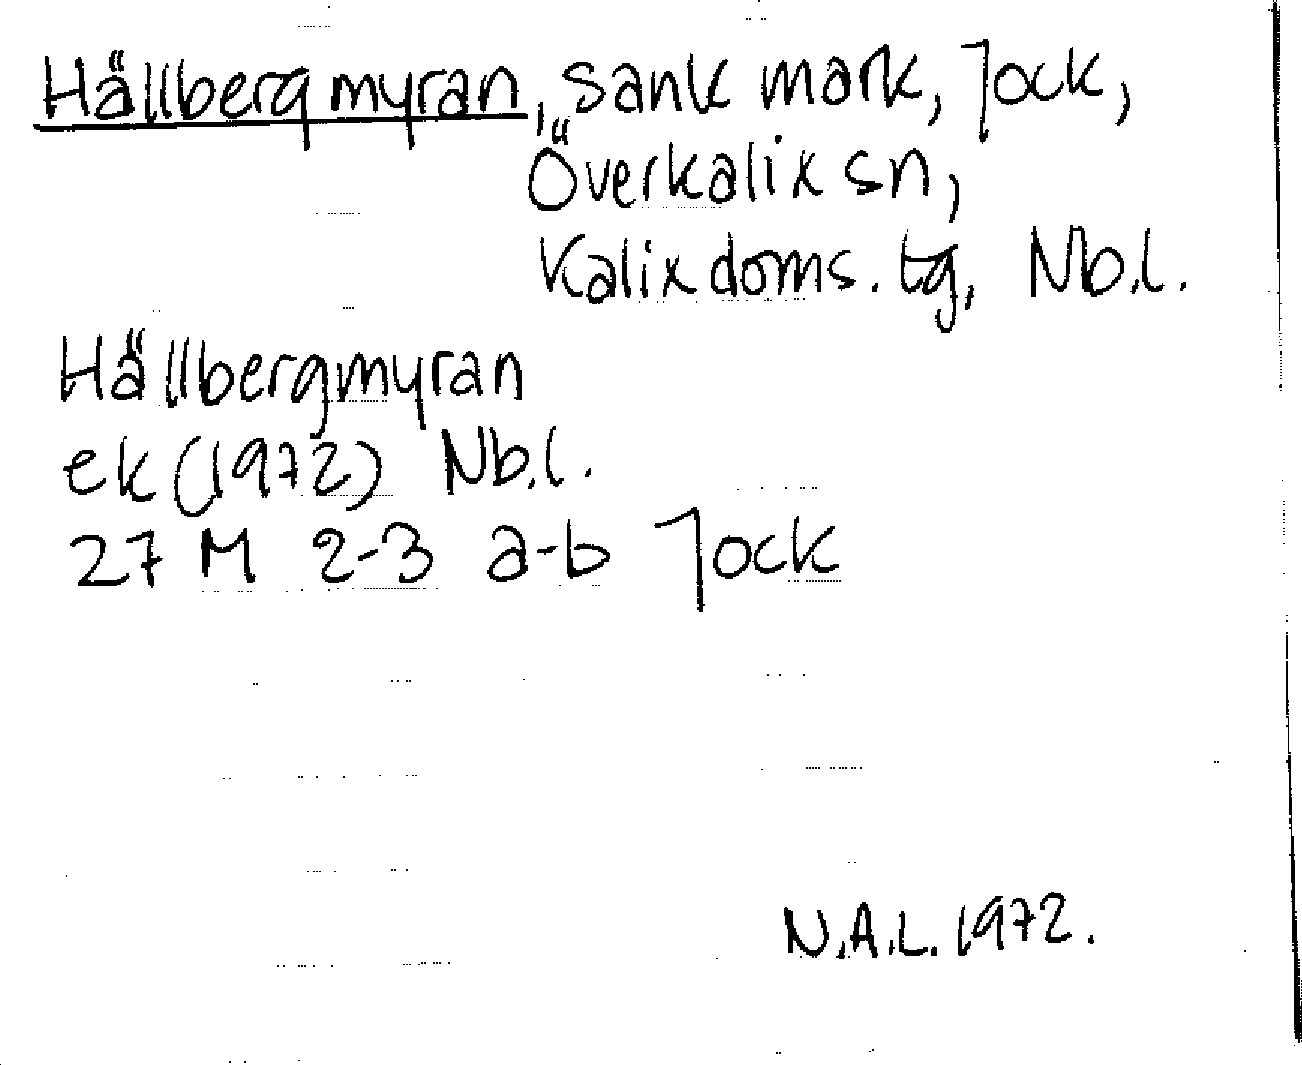 Hällbergmyran, sank mark, Jock,
Överkalix sn,
Kalix doms. tg, Nb.l.
Hällbergmyran
ek (1972) Nb.l.
27 M 2-3 a-b Jock
N.A.L. 1972.